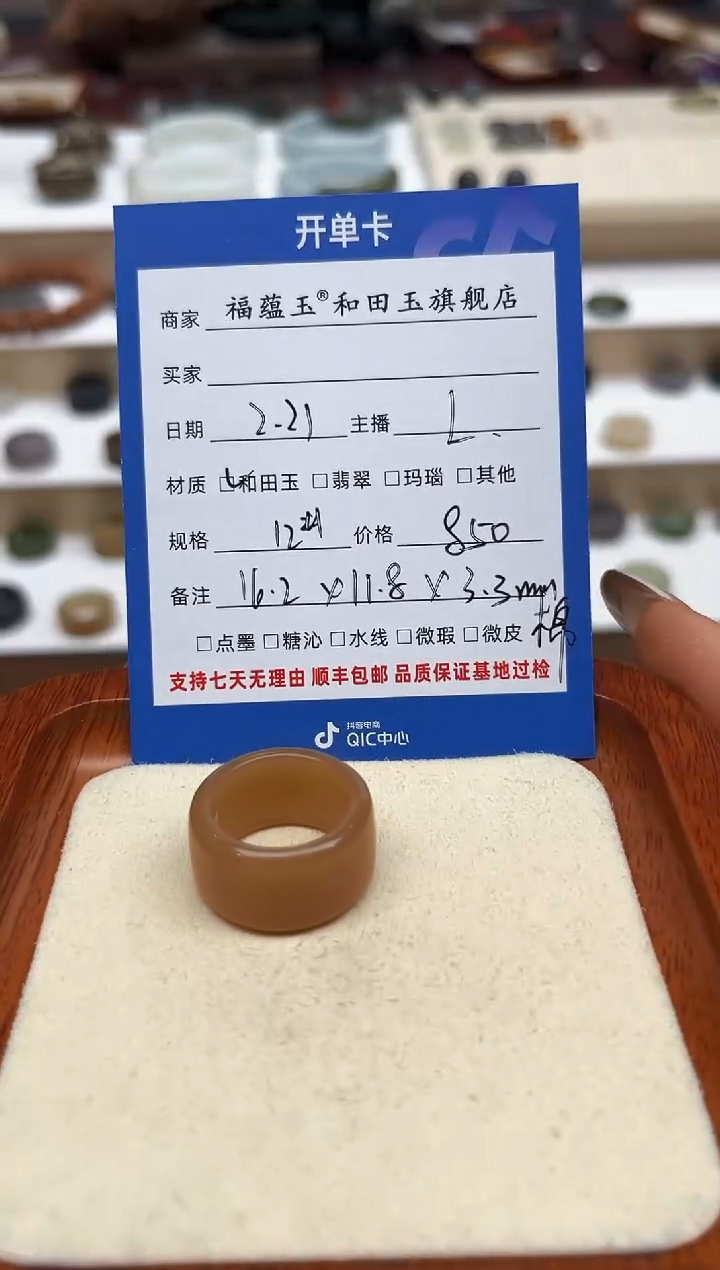 开单卡
商家 福蕴玉®和田玉旗舰店
买家
日期 2.21 主播 L.
材质 ☑和田玉 □翡翠 □玛瑙 □其他
规格 12 价格 850
备注 16.2×11.8×3.3mm
□点墨 □糖沁 □水线 □微瑕 □微皮 棉
支持七天无理由 顺丰包邮 品质保证基地过检
抖音电商
QIC中心